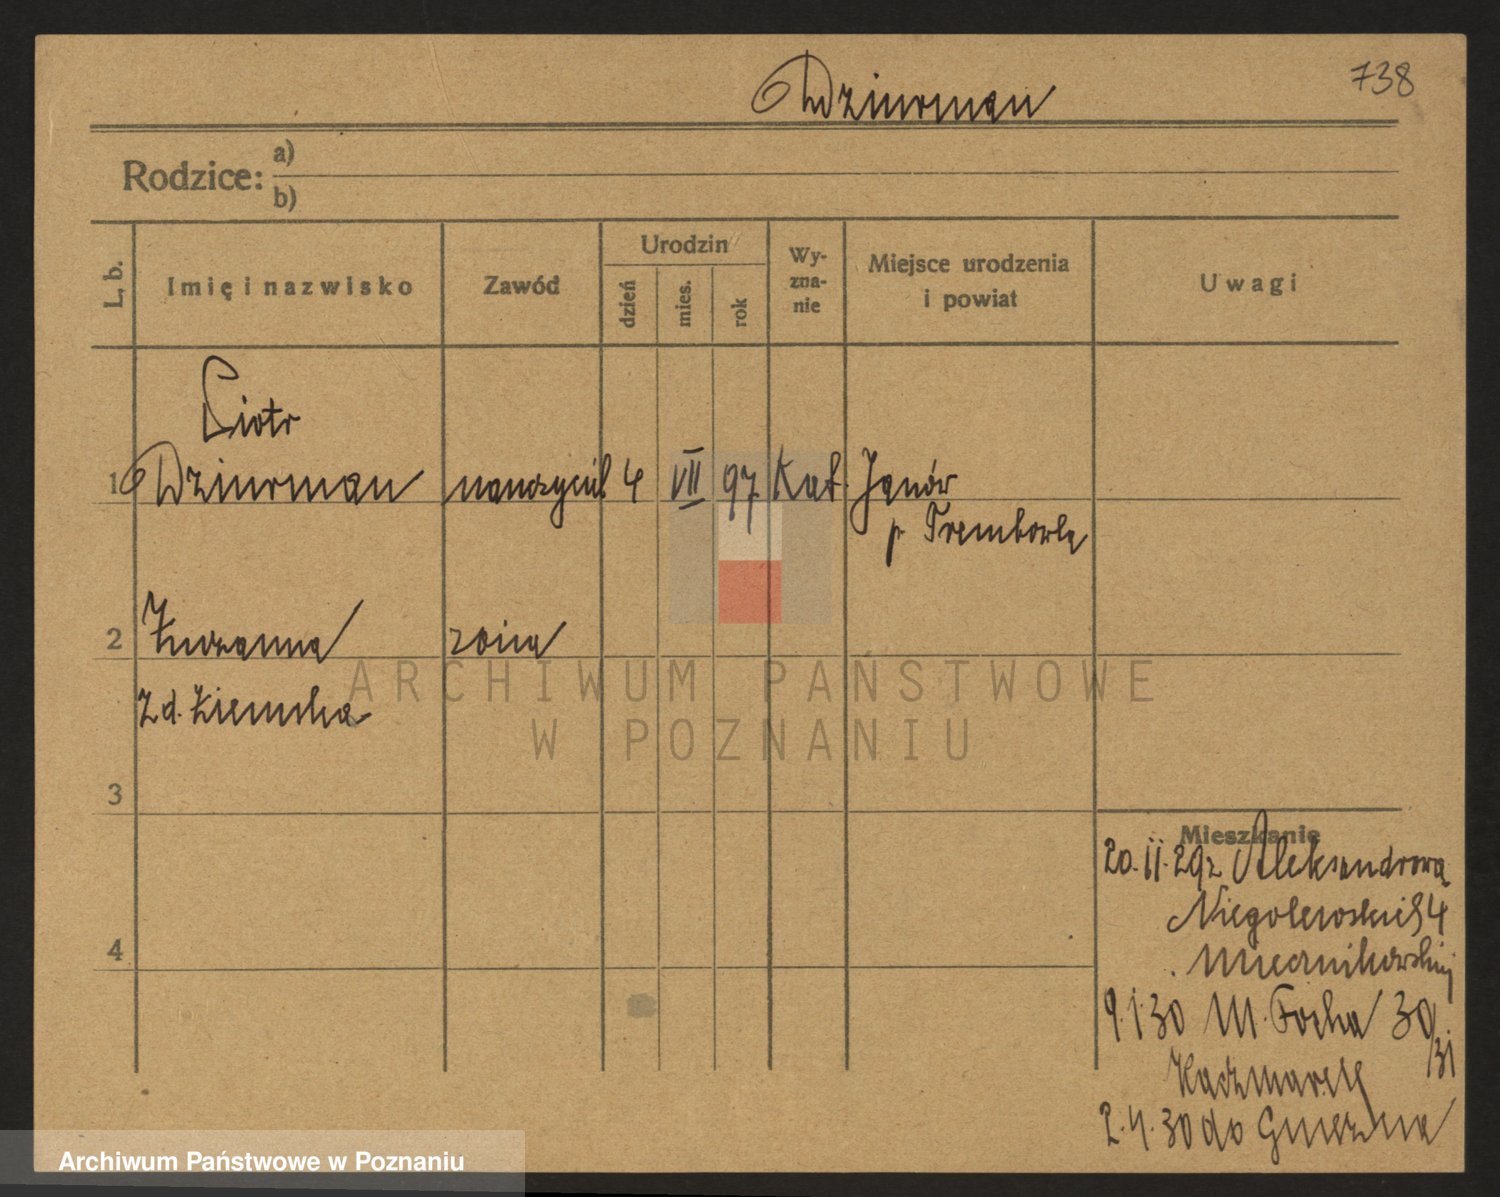 738
Dziurman
Rodzice: a)
b)
L. b. Imię i nazwisko Zawód Urodzin dzień mies. rok Wy-zna-nie Miejsce urodzenia i powiat Uwagi
Piotr
1 Dziurman nauczyciel 4 VII 97 Kat. Janów
p. Trembowla
2 Zuzanna żona
z d. Ziemska
3
Mieszkanie
20.II.29 z Aleksandrowa
Niegolewskich 4
4
9.1.30 M. Focha 30/31
Kaczmarek
2.4.30 do Gniezna
ARCHIWUM PAŃSTWOWE
W POZNANIU
Archiwum Państwowe w Poznaniu